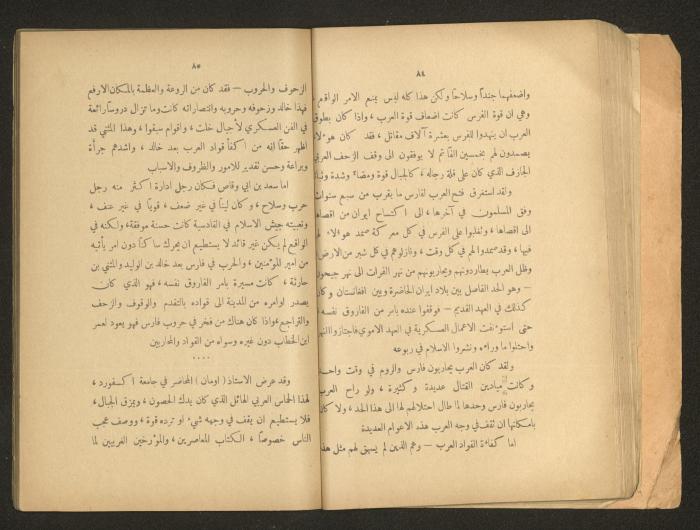 ٨٤
واضعفهما جنداً وسلاحاً ولكن هذا كله ليس بمنع الامر الواقع ،
وهي ان قوة الفرس كانت اضعاف قوة العرب ، واذا كان بطوق
العرب ان ينهدوا للفرس بعشرة آلاف مقاتل ، فقد كان هؤلاء
يصمدون لهم بخمسين الفا ثم لا يوفقون الى وقف الزحف العربي
الجازف الذي كان على قلة رجاله ، كالجبال قوة ومضاء وشدة
ولقد استغرق فتح العرب لفارس ما يقرب من سبع سنوات
وفق المسلمون في آخرها ، الى اكتساح ايران من اقصاها
الى اقصاها ، وتغلبوا على الفرس في كل معركة صمد هؤلاء لهم
فيها ، وقد صمدوا لهم في كل وقت ، ونازلوهم في كل شبر من الارض
وظل العرب يطاردونهم ويحاربونهم من نهر الفرات الى نهر جيحون
— وهو الحد الفاصل بين بلاد ايران الحاضرة وبين افغانستان وكان
كذلك في العهد القديم — فوقفوا عنده بامر من الفاروق نفسه ،
حتى استوءنفت الاعمال العسكرية في العهد الاموي فاجتازوا النهر
واحتلوا ما وراءه ونشروا الاسلام في ربوعه
ولقد كان العرب يحاربون فارس والروم في وقت واحد
وكانت ميادين القتال عديدة وكثيرة ، ولو راح العرب
يحاربون فارس وحدها لما طال احتلالهم لها الى هذا الحد ، ولا كان
بامكانها ان تقف في وجه العرب هذه الاعوام العديدة
اما كفاءة القواد العرب — وهم الذين لم يسبق لهم مثل هذه
٨٥
الزحوف والحروب — فقد كان من الروعة والعظمة بالمكان الارفع
فهذا خالد وزحوفه وحروبه وانتصاراته كانت وما تزال دروساً رائعة
في الفن العسكري لأجيال خلت ، واقوام سبقوا ، وهذا المثنى قد
اظهر حقا انه من اكفأ قواد العرب بعد خالد ، واشدهم جرأة
وبراعة وحسن تقدير للامور والظروف والاسباب
اما سعد بن ابي وقاص فكان رجل ادارة اكثر منه رجل
حرب وسلاح ، وكان ليناً في غير ضعف ، قوياً في غير عنف ،
وتعبيته جيش الاسلام في القادسية كانت حسنة موفقة ، ولكنه في
الواقع لم يكن غير قائد لا يستطيع ان يحرك ساكناً دون امر يأتيه
من امير المؤمنين ، والحرب في فارس بعد خالد بن الوليد والمثنى بن
حارثة ، كانت مسيرة بامر الفاروق نفسه ، فهو الذي كان
يصدر اوامره من المدينة الى قواده بالتقدم والوقوف والزحف
والتراجع ، واذا كان هناك من فخر في حروب فارس فهو يعود لعمر
ابن الخطاب دون غيره وسواه من القواد والمحاربين
....
وقد عرض الاستاذ ( اومان ) المحاضر في جامعة اكسفورد ،
لهذا الحماس العربي الهائل الذي كان يدك الحصون ، ويمزق الجبال ،
فلا يستطيع ان يقف في وجهه شيء او ترده قوة ، ووصف عجب
الناس خصوصاً ، الكتاب المعاصرين ، والمؤرخين الغربيين لما